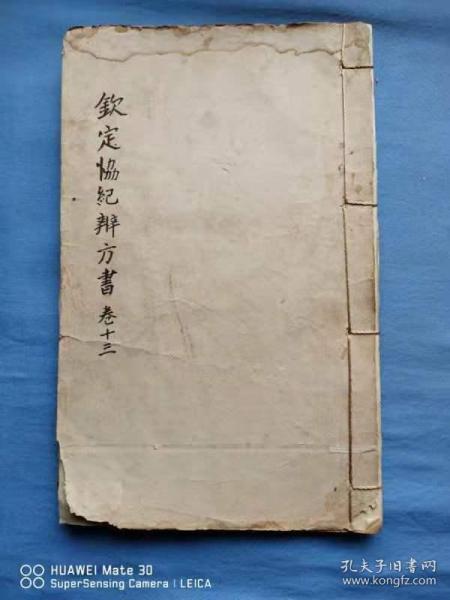 钦定恊纪辨方書 卷十三
HUAWEI Mate 30
SuperSensing Camera | LEICA
孔夫子旧书网
www.kongfz.com